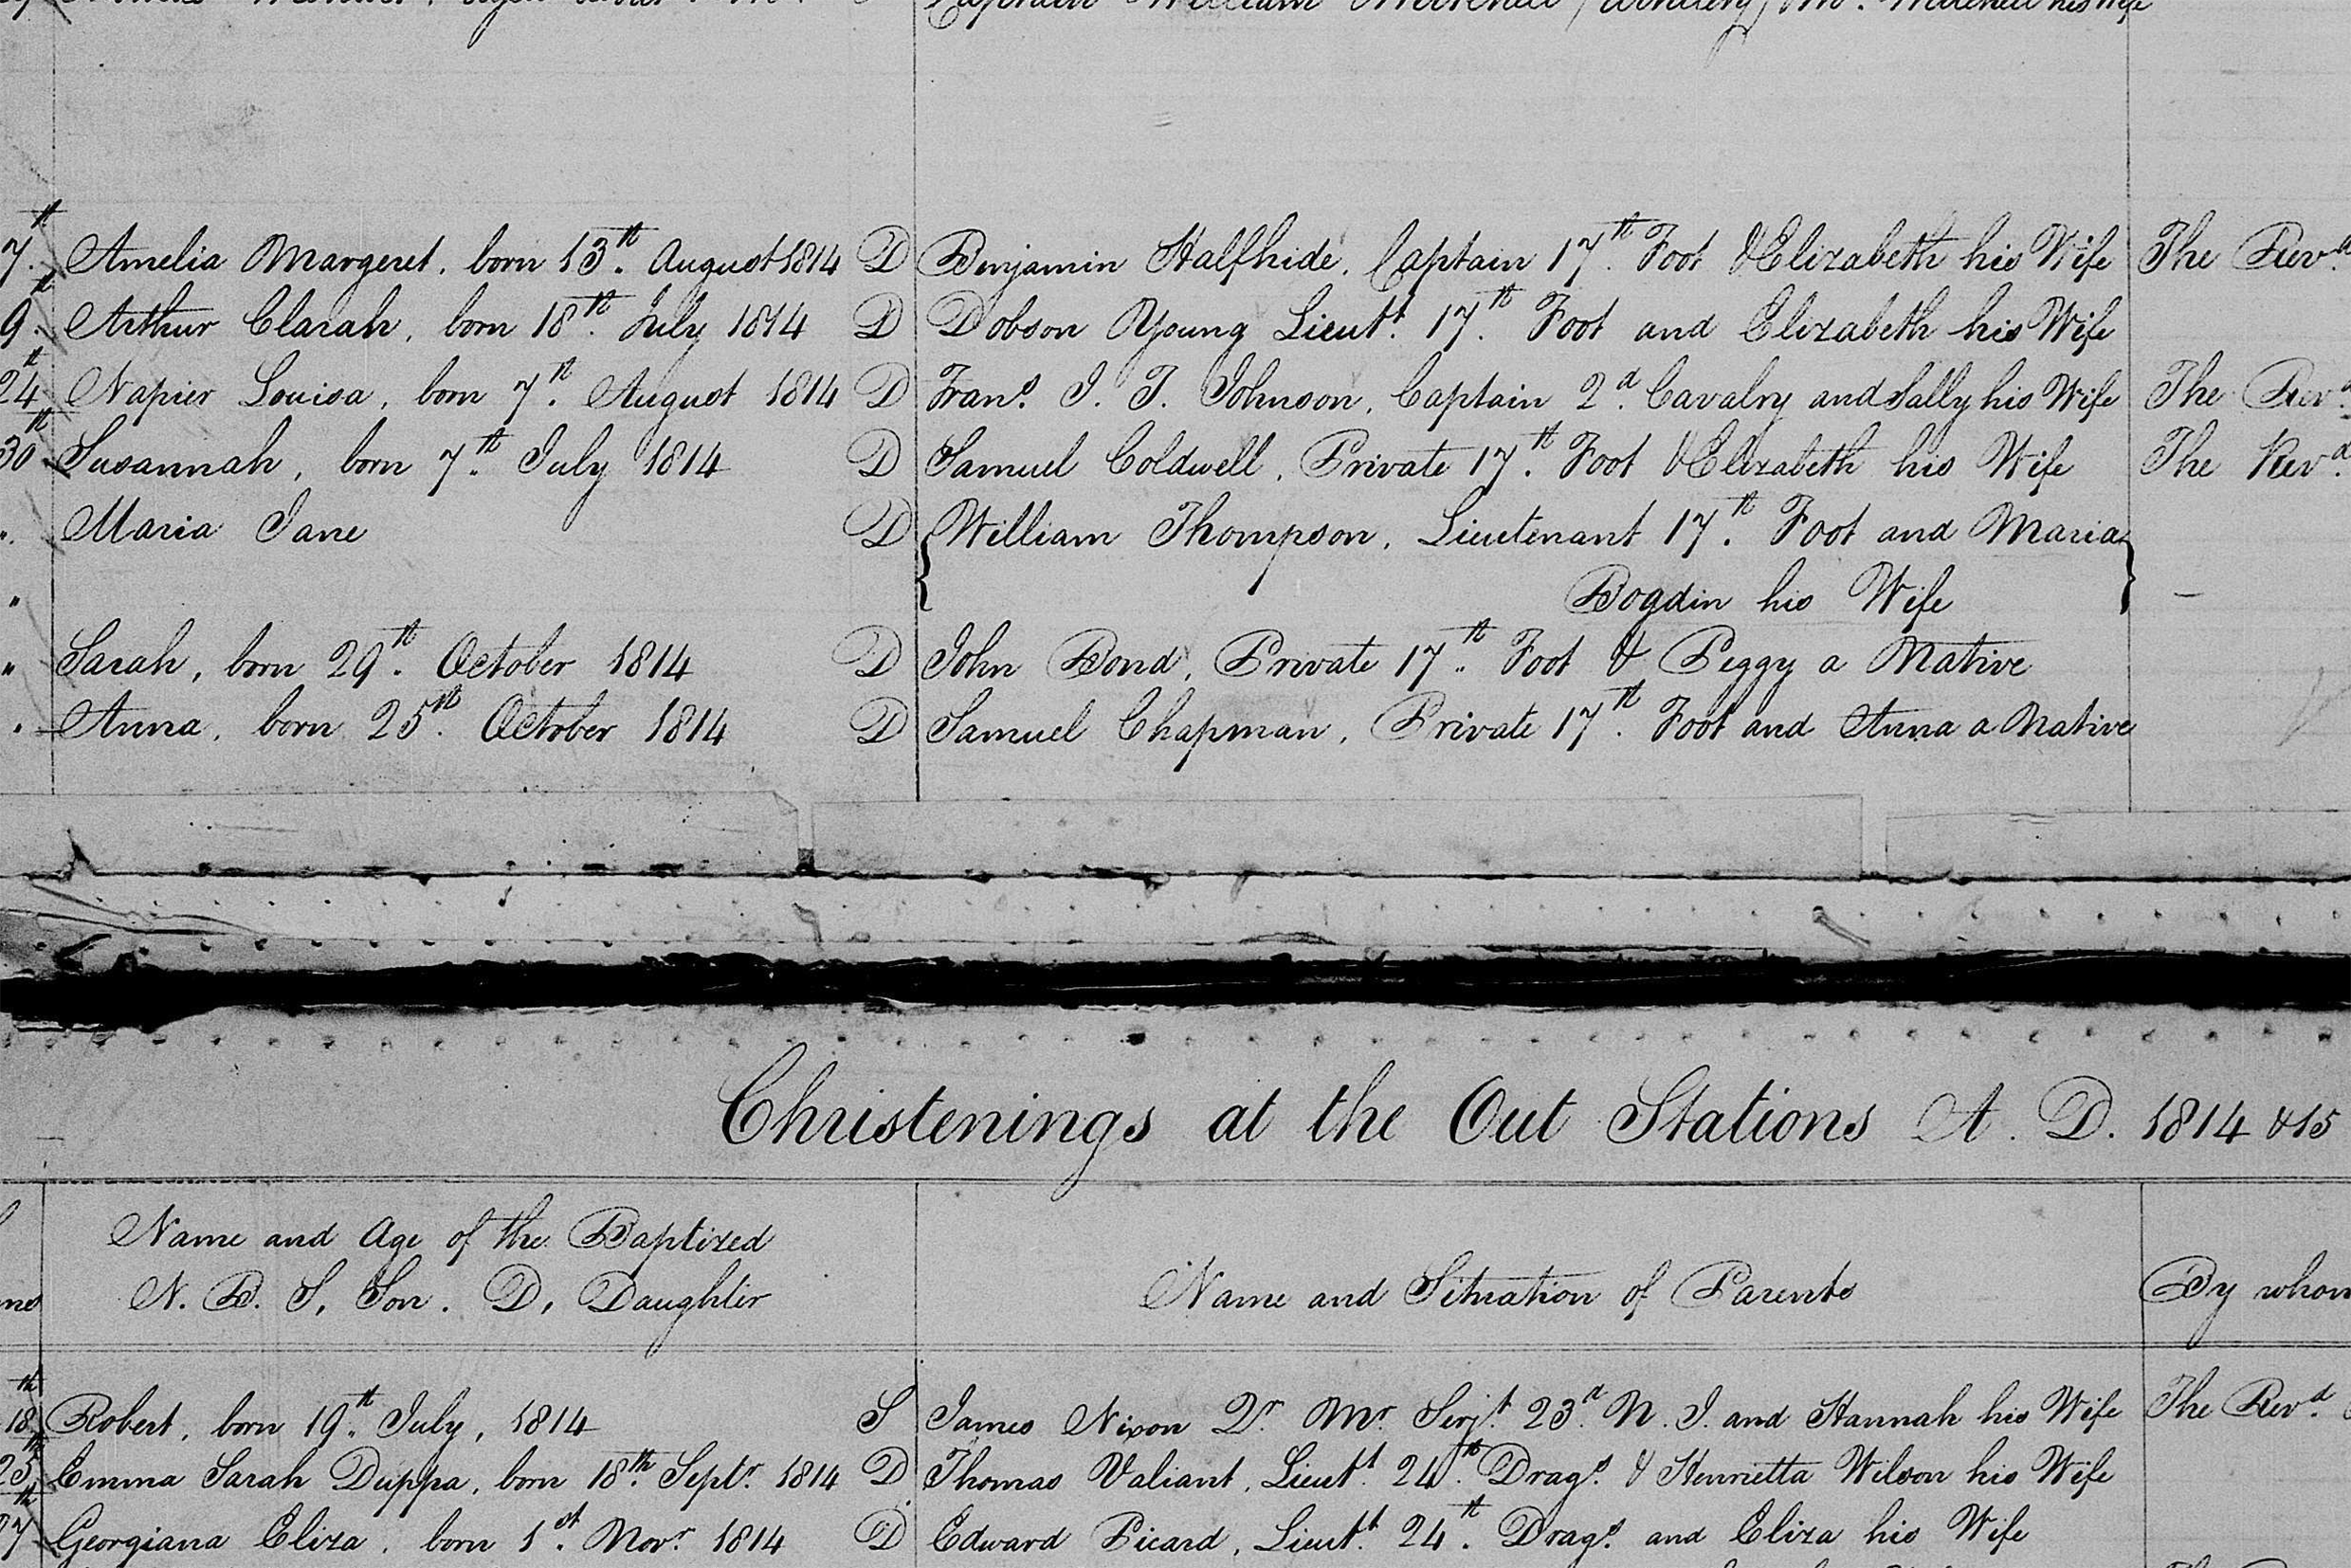 Captain William Mitchell his Wife
7th Amelia Margeret, born 13th August 1814 D Benjamin Halfhide, Captain 17th Foot & Elizabeth his Wife The Revd
9th Arthur Clarah, born 18th July 1814 D Dobson Young Lieutt 17th Foot and Elizabeth his Wife
24th Napier Louisa, born 7th August 1814 D Frans J. T. Johnson, Captain 2d Cavalry and Sally his Wife The Revd
30th Susannah, born 7th July 1814 D Samuel Coldwell, Private 17th Foot & Elizabeth his Wife The Revd
" Maria Jane D William Thompson, Lieutenant 17th Foot and Maria
" Bogdin his Wife —
" Sarah, born 29th October 1814 D John Bond, Private 17th Foot & Peggy a Native
" Anna, born 25th October 1814 D Samuel Chapman, Private 17th Foot and Anna a Native
Christenings at the Out Stations A. D. 1814 & 15
Name and Age of the Baptized
N. B. S, Son. D, Daughter
Name and Situation of Parents
By whom
18th Robert, born 19th July, 1814 S James Nixon Qr Mr Serjt 23d N. I. and Hannah his Wife The Revd
25th Emma Sarah Duppa, born 18th Septr 1814 D Thomas Valiant, Lieutt 24th Drags & Henrietta Wilson his Wife
27th Georgiana Eliza, born 1st Novr 1814 D Edward Picard, Lieutt 24th Drags and Eliza his Wife